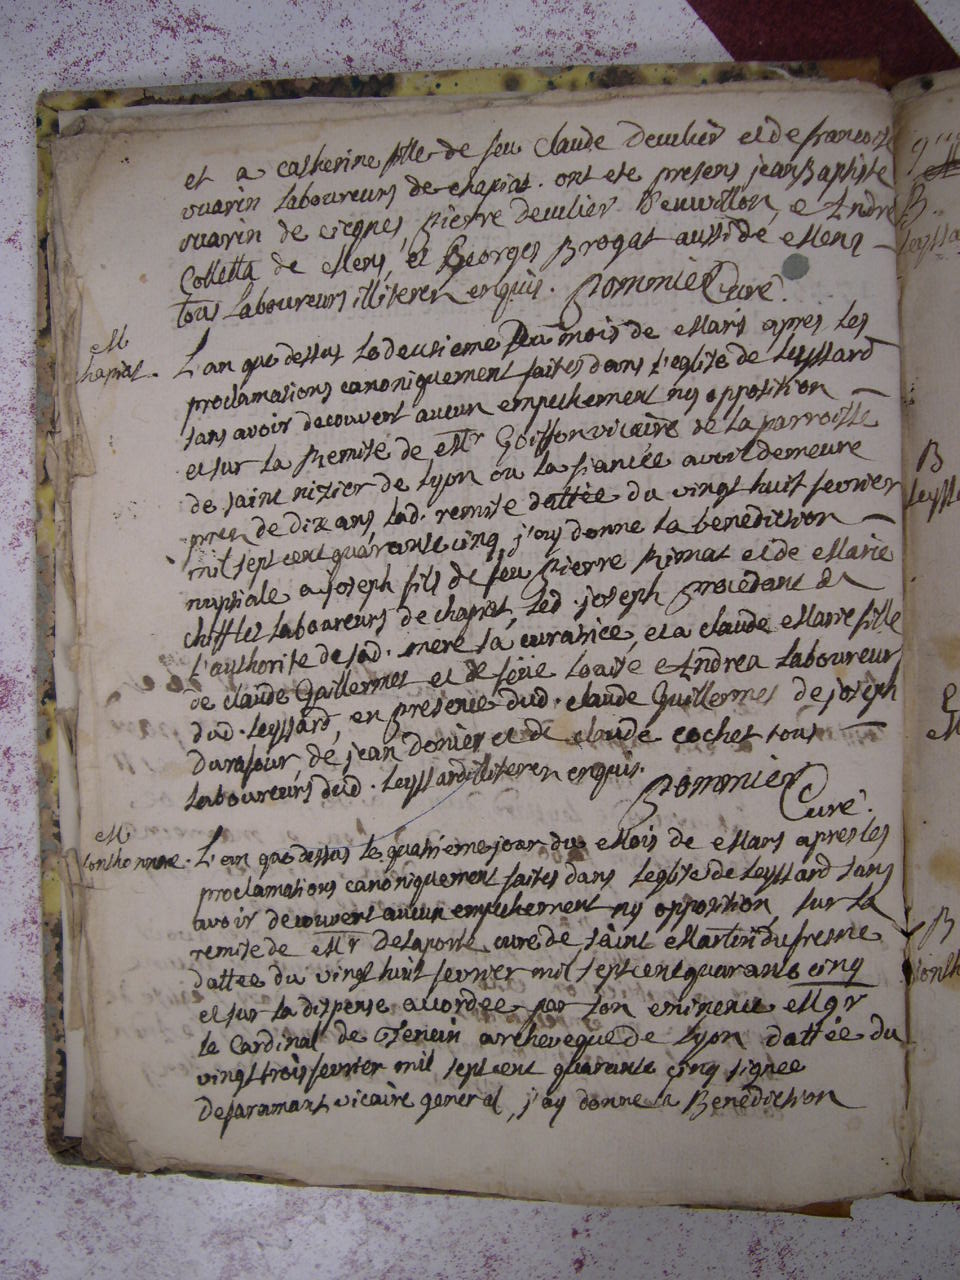 et a Catherine fille de feu Claude Deculier et de francoise
vuarin Laboureurs de chapiat. ont ete presens jean Baptiste
vuarin de ciegnes, Pierre deculier Beuvillon, e Andre
Colletta de Mens, et Georges Brogat aussi de Mens
tous Laboureurs illiteren enquis. Pommier Curé.
M
chapiat.
L'an que dessus Le deusieme Du mois de Mars apres les
proclamations canoniquement faites dans l'eglise de Leyssard
sans avoir decouvert aucun empechement ny opposition
et sur La Remise de Mr Goiffon vicaire de La parroisse
de saint nizier de Lyon ou La fiancée avoit demeure
pres de dix ans, Lad. remise dattée du vingt huit fevrier
mil sept cent quarante cinq, j'ay donne La benediction
nuptiale a joseph fils de feu Pierre Pirnat et de Marie
chifflet Laboureurs de chapiat, Led. joseph procedant de
l'authorite de sad. mere sa curatrice, et a claude Marie fille
de claude Guillermet et de Andrea Laboureurs
dud. Leyssard, en presence dud. claude Guillermet de joseph
Durafour, de jean donier et de claude cochet tous
Laboureurs dud. Leyssard illiteren enquis.
Pommier Curé.
M
L'an que dessus Le quatrieme jour du Mois de Mars apres les
proclamations canoniquement faites dans Leglise de Leyssard sans
avoir decouvert aucun empechement ny opposition, sur La
remise de Mr Delaporte curé de saint Martin du fresne
dattee du vingt huit fevrier mil sept cent quarante cinq
et sur La dispense accordee par son eminence Mgr
Le Cardinal de Tencin archeveque de Lyon dattée du
vingt trois fevrier mil sept cent quarante cinq signee
Desaramant vicaire general, j'ay donne La Benediction
B
B
B